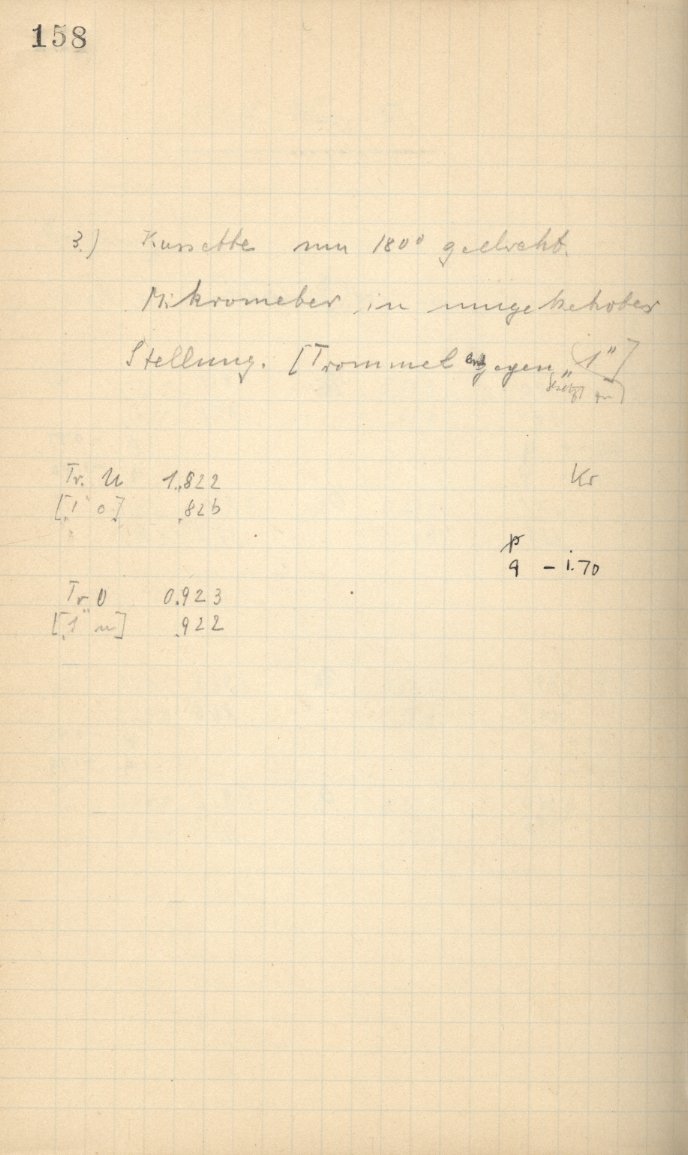 158
3.) Kassette um 180° gedreht.
Mikrometer in umgekehrter
Stellung. [Trommel entgegen „1"]
Tr. U 1.822 Kr
[„1" o] .826
p
9 - 1.70
Tr O 0.923
[„1" u] .922